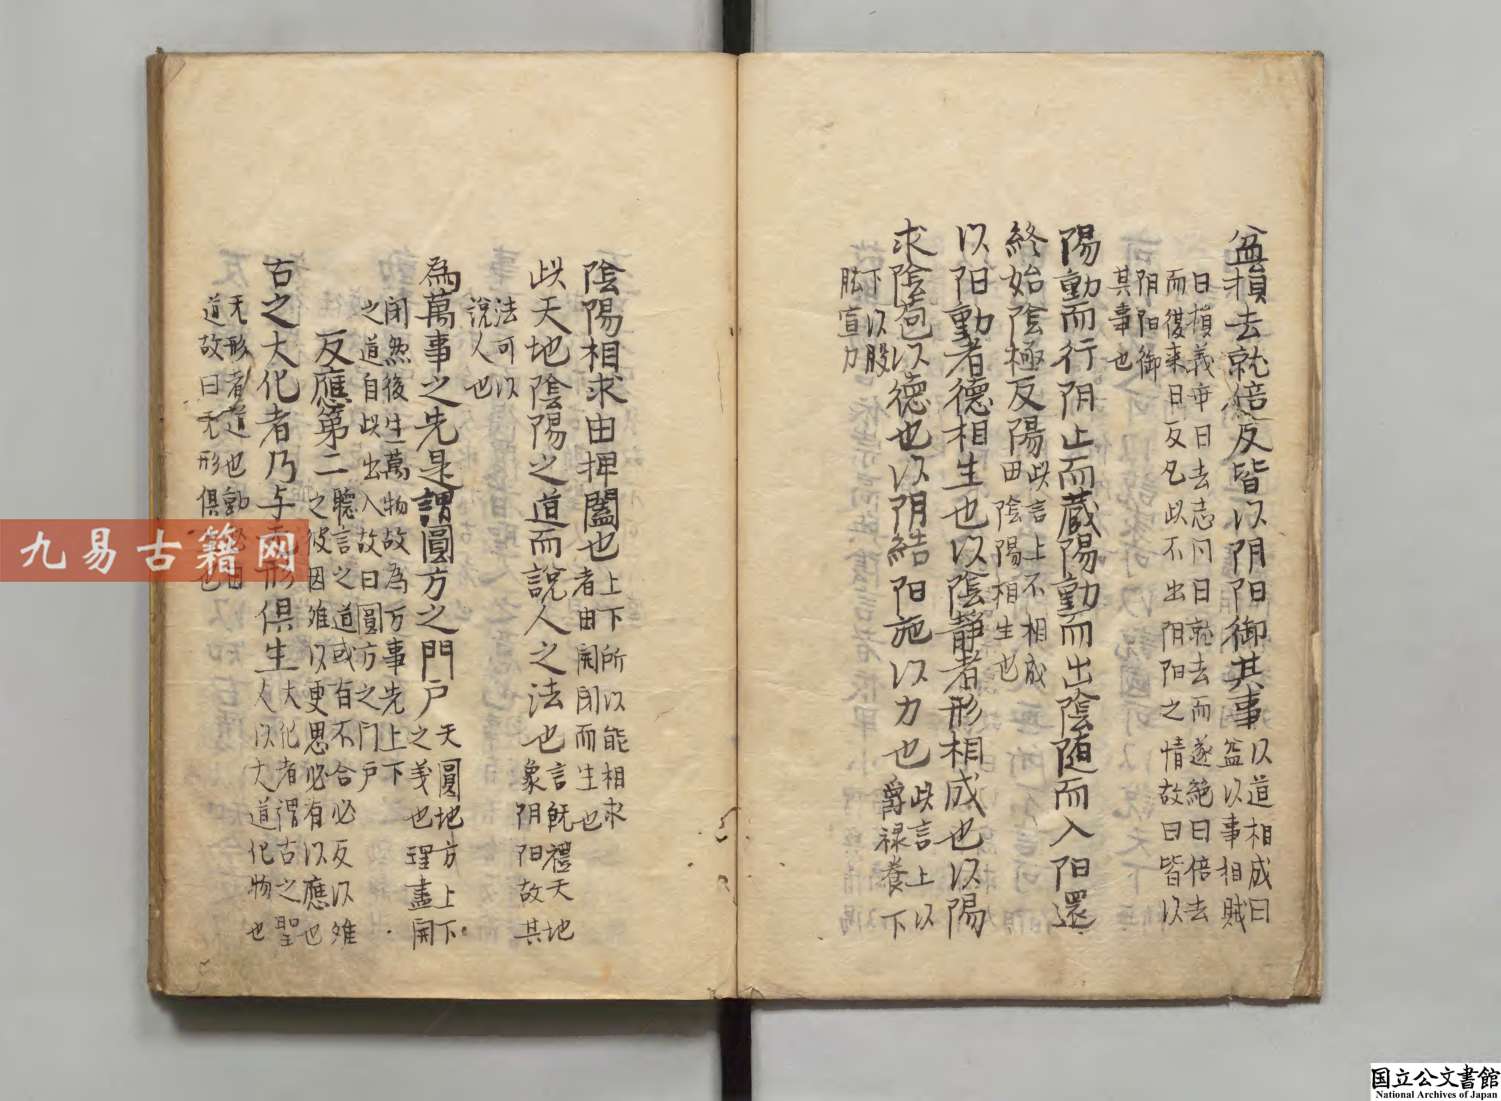 益損去就倍反皆以阴阳御其事
以道相成曰
益以事相賊
曰損義乖曰去志同曰就去而遂絶曰倍去
而復来曰反凡此不出阴阳之情故曰皆以
阴阳御
其事也
陽動而行阴止而蔵陽動而出陰随而入阳還
終始陰極反陽
此言上下相成
由陰陽相生也
以阳動者德相生也以陰静者形相成也以陽
求陰苞以德也以阴結阳施以力也
此言上以
爵禄養下
下以股
肱宣力
陰陽相求由捭闔也
上下所以能相求
者由開閉而生也
此天地陰陽之道而說人之法也
言既禮天地
象阴阳故其
法可以
說人也
為萬事之先是謂圓方之門戸
天圓地方上下
之義也理盡開
閉然後生萬物故為万事先上下
之道自此出入故曰圓方之门户
反應第二
聽言之道或有不合必反以难
之彼因难以更思必有以應也
古之大化者乃与无形俱生
大化者謂古之聖
人以大道化物也
无形者道也動必由
道故曰无形俱生也
九易古籍网
国立公文書館
National Archives of Japan